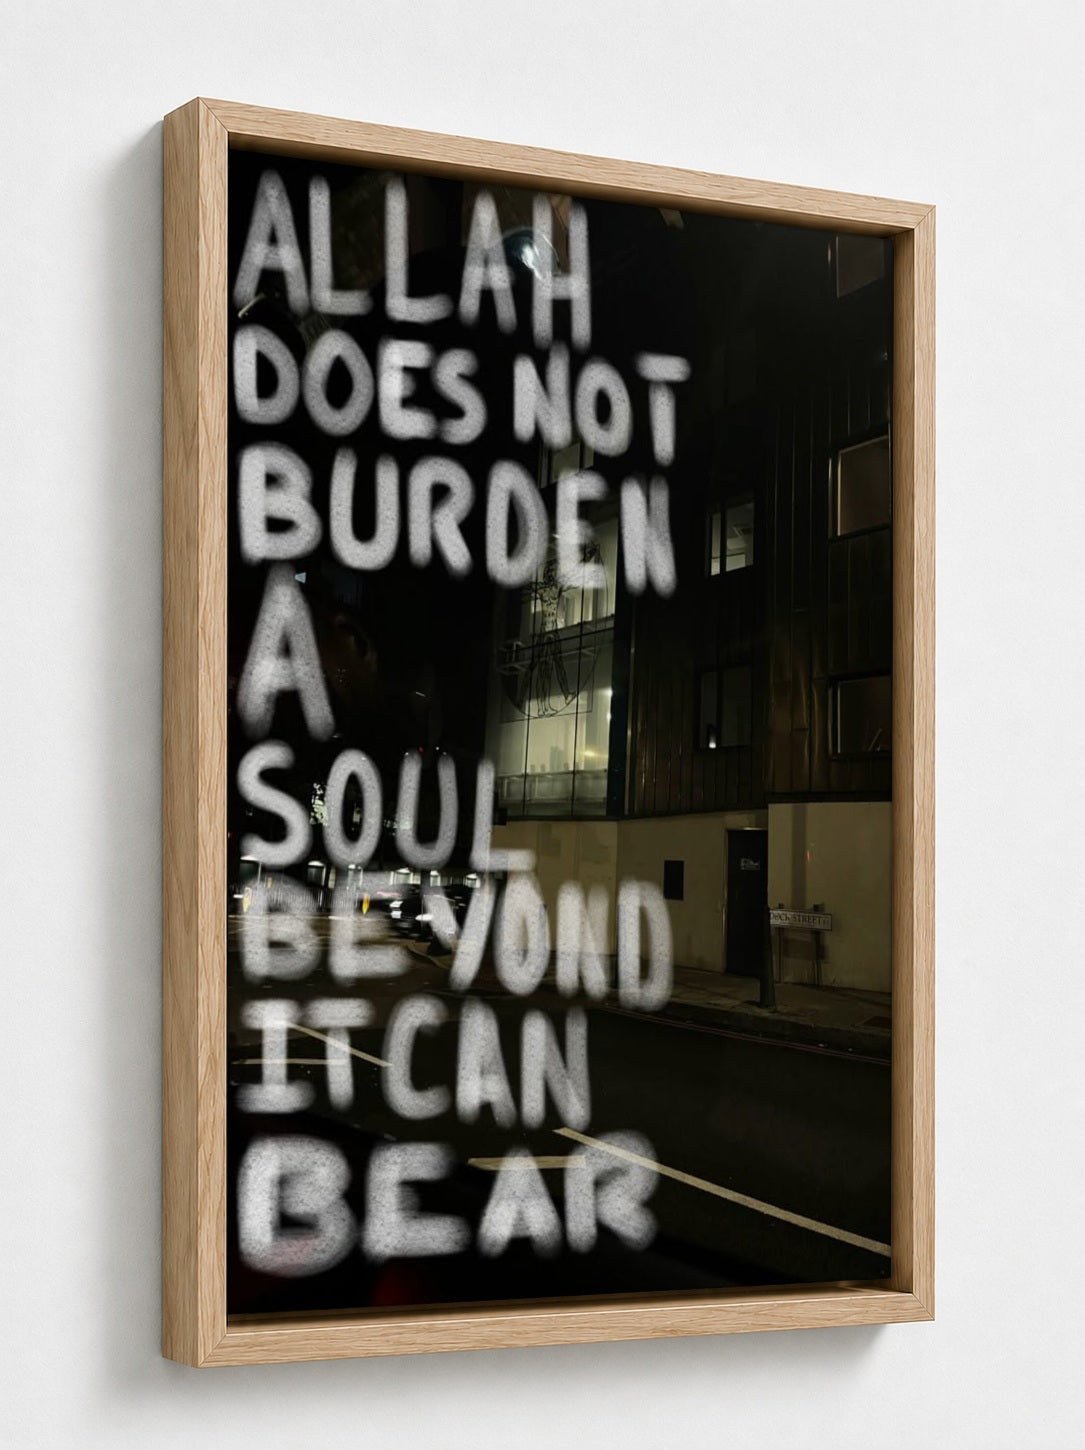 ALLAH
DOES NOT
BURDEN
A
SOUL
BEYOND
IT CAN
BEAR
DOCK STREET